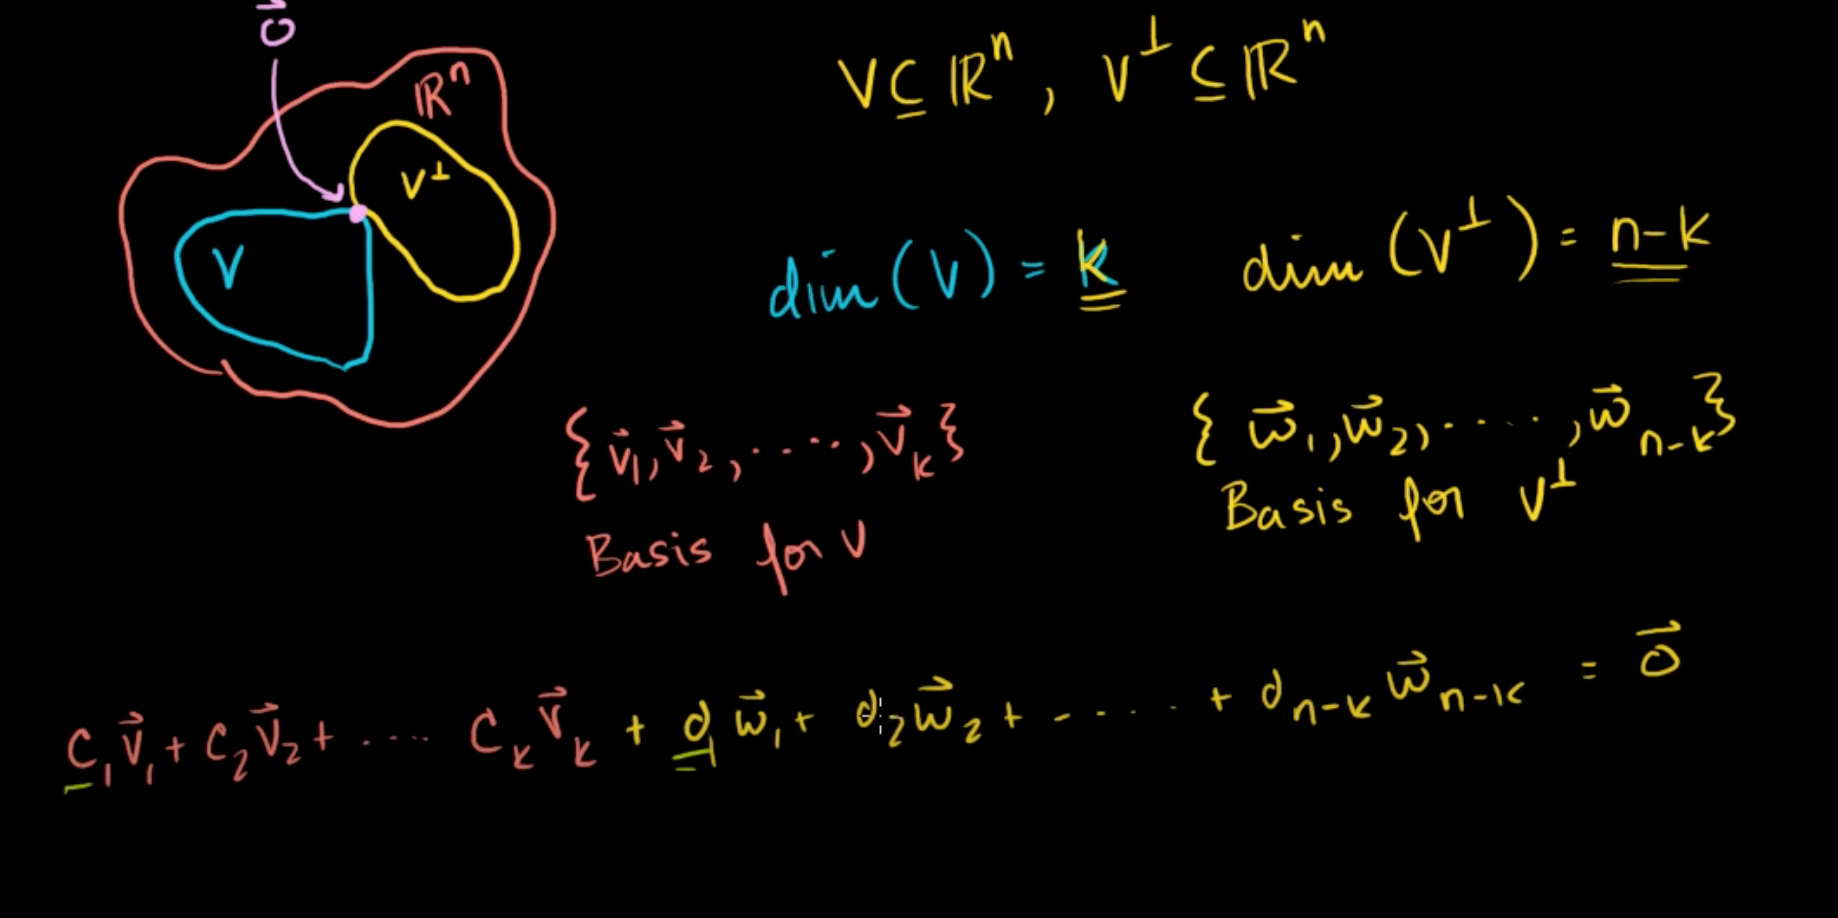 0⃗
ℝⁿ
V ⊆ ℝⁿ , V^⊥ ⊆ ℝⁿ
V^⊥
V
dim(V) = k
dim(V^⊥) = n-k
{v⃗₁, v⃗₂, ....., v⃗ₖ}
Basis for V
{w⃗₁, w⃗₂, ....., w⃗ₙ₋ₖ}
Basis for V^⊥
C₁v⃗₁ + C₂v⃗₂ + .... Cₖv⃗ₖ + d₁w⃗₁ + d₂w⃗₂ + ..... + dₙ₋ₖw⃗ₙ₋ₖ = 0⃗